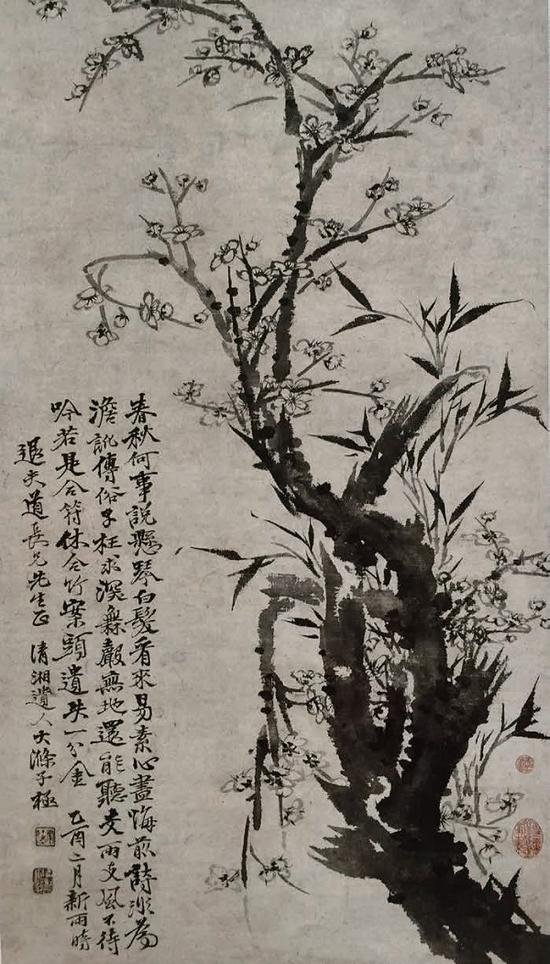 春秋何事說懸琴白髮看來易素心盡悔前詩為
澹訛傳俗子枉求深聲無地還能聽交雨交風不待
吟若是合符休合竹案頭遺失一分金 乙酉二月新雨時
退夫道長兄先生正 清湘遺人大滌子極